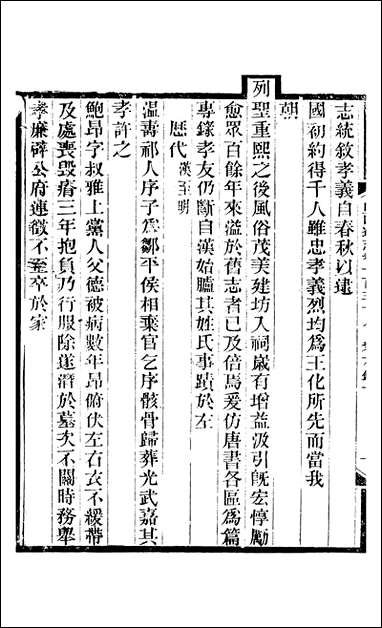 志統敘孝義自春秋以逮
國初約得千人雖忠孝義烈均爲王化所先而當我
朝
列聖重熙之後風俗茂美建坊入祠歲有增益汲引旣宏惇勵
愈眾百餘年來溢於舊志者已及倍焉爰仿唐書各區爲篇
專錄孝友仍斷自漢始臚其姓氏事蹟於左
歷代漢至明
溫壽祁人序子爲鄒平侯相棄官乞序骸骨歸葬光武嘉其
孝許之
鮑昂字叔雅上黨人父德被病數年昂俯伏左右衣不緩帶
及處喪毀瘠三年抱負乃行服除遂潛於墓次不關時務舉
孝廉辟公府連徵不至卒於家